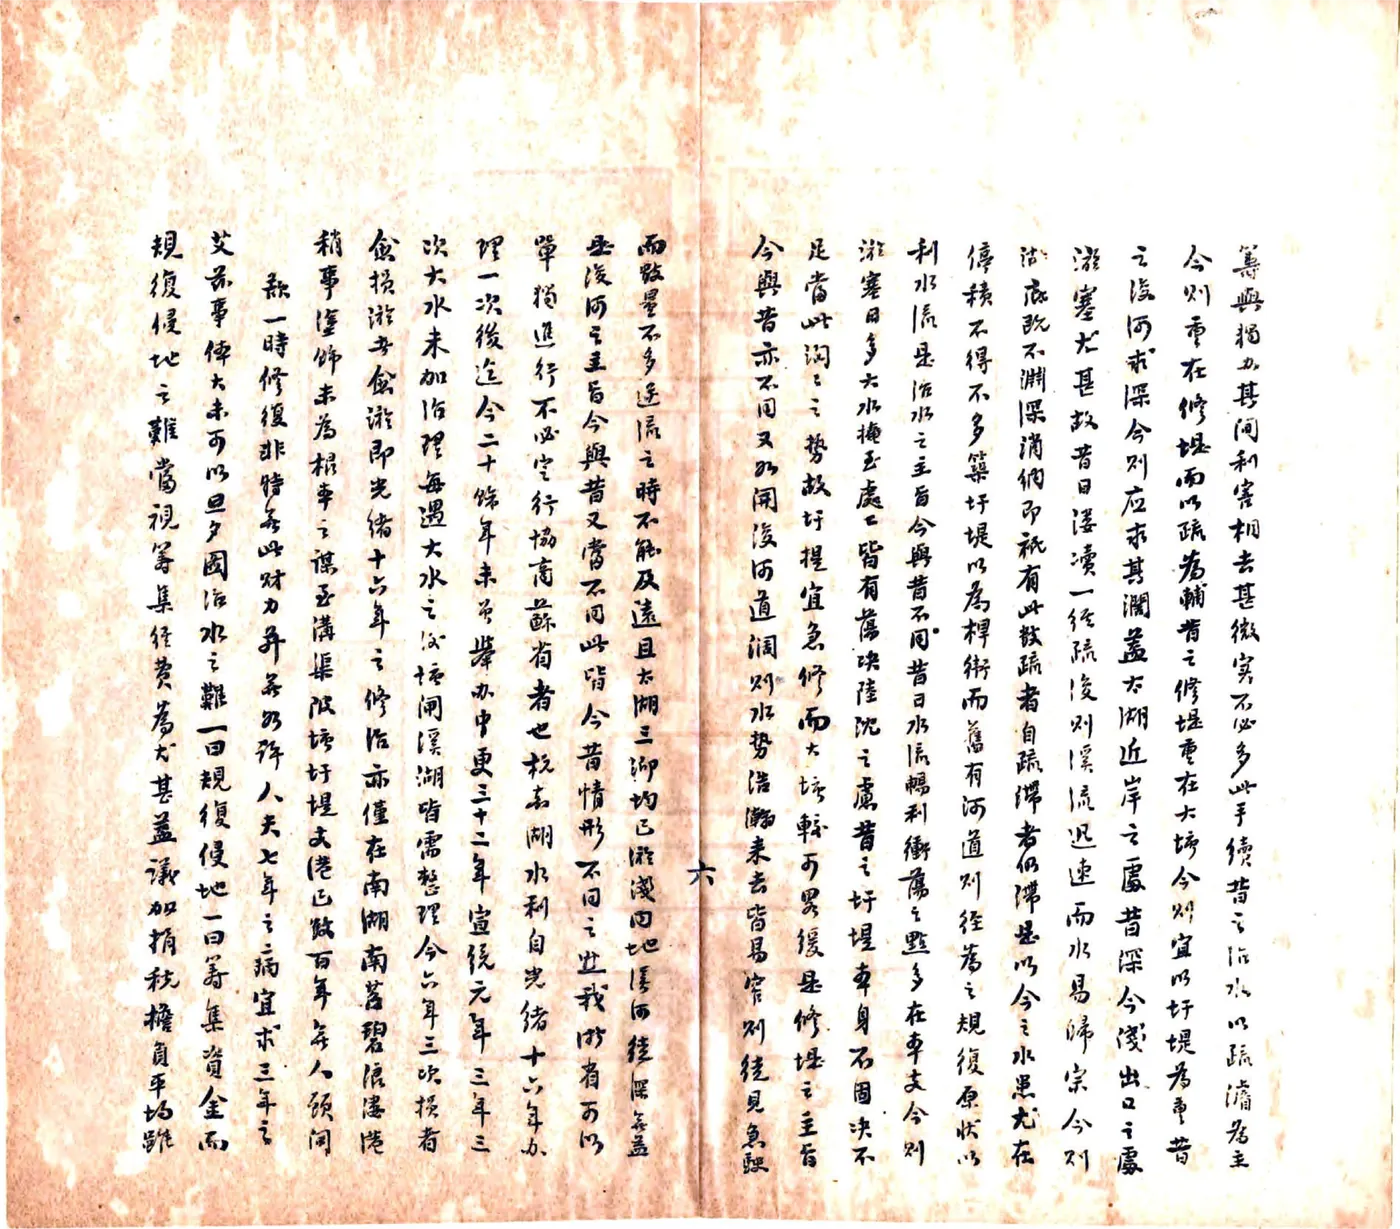 籌與獨力其间利害相去甚微实不必多此手續昔之治水以疏濬為主
今则重在修堤而以疏為輔昔之修堤重在大塘今则宜以圩堤為重昔
之浚河求深今则应求其濶蓋太湖近岸之處昔深今淺出口之處
淤塞尤甚故昔日溇瀆一經疏浚则溪流迅速而水易歸宗今则
湖底既不渊深消纳即祇有此数疏者自疏滞者仍滞是以今之水患尤在
停積不得不多築圩堤以為桿衛而舊有河道则徑為之規復原状以
利水流是治水之主旨今與昔不同昔日水流暢利衝蕩之點多在本支今则
淤塞日多大水掩至處亡皆有蕩决陸沈之慮昔之圩堤本身不固决不
足當此洶之之勢故圩提宜急修而大塘較可畧缓是修堤之主旨
今與昔亦不同又如開浚河道濶则水势浩瀚来去皆易窄则徒見急駛
六
而數量不多逆流之時不能及遠且太湖三泖均已淤淺内地溪河徒深無益
是浚河之主旨今與昔又當不同此皆今昔情形不同之世我浙省可以
單獨進行不必定行協商蘇省者也杭嘉湖水利自光緒十六年办
理一次後迄今二十餘年未曾举办中更三十二年宣統元年三年三
次大水未加治理每遇大水之後塘閘溪湖皆需整理今六年三次損者
愈損淤者愈淤即光緒十六年之修治亦僅在南湖南苕碧浪溇港
稍事塗飾未為根本之謀至溝渠陂塘圩堤支港已数百年無人顧问
欲一時修復非特無此财力并無如許人夫七年之病宜求三年之
艾茲事体大未可以旦夕圖治水之難一曰規復侵地一曰籌集資金而
規復侵地之難當視籌集经费為尤甚蓋議加捐税擔負平均雖